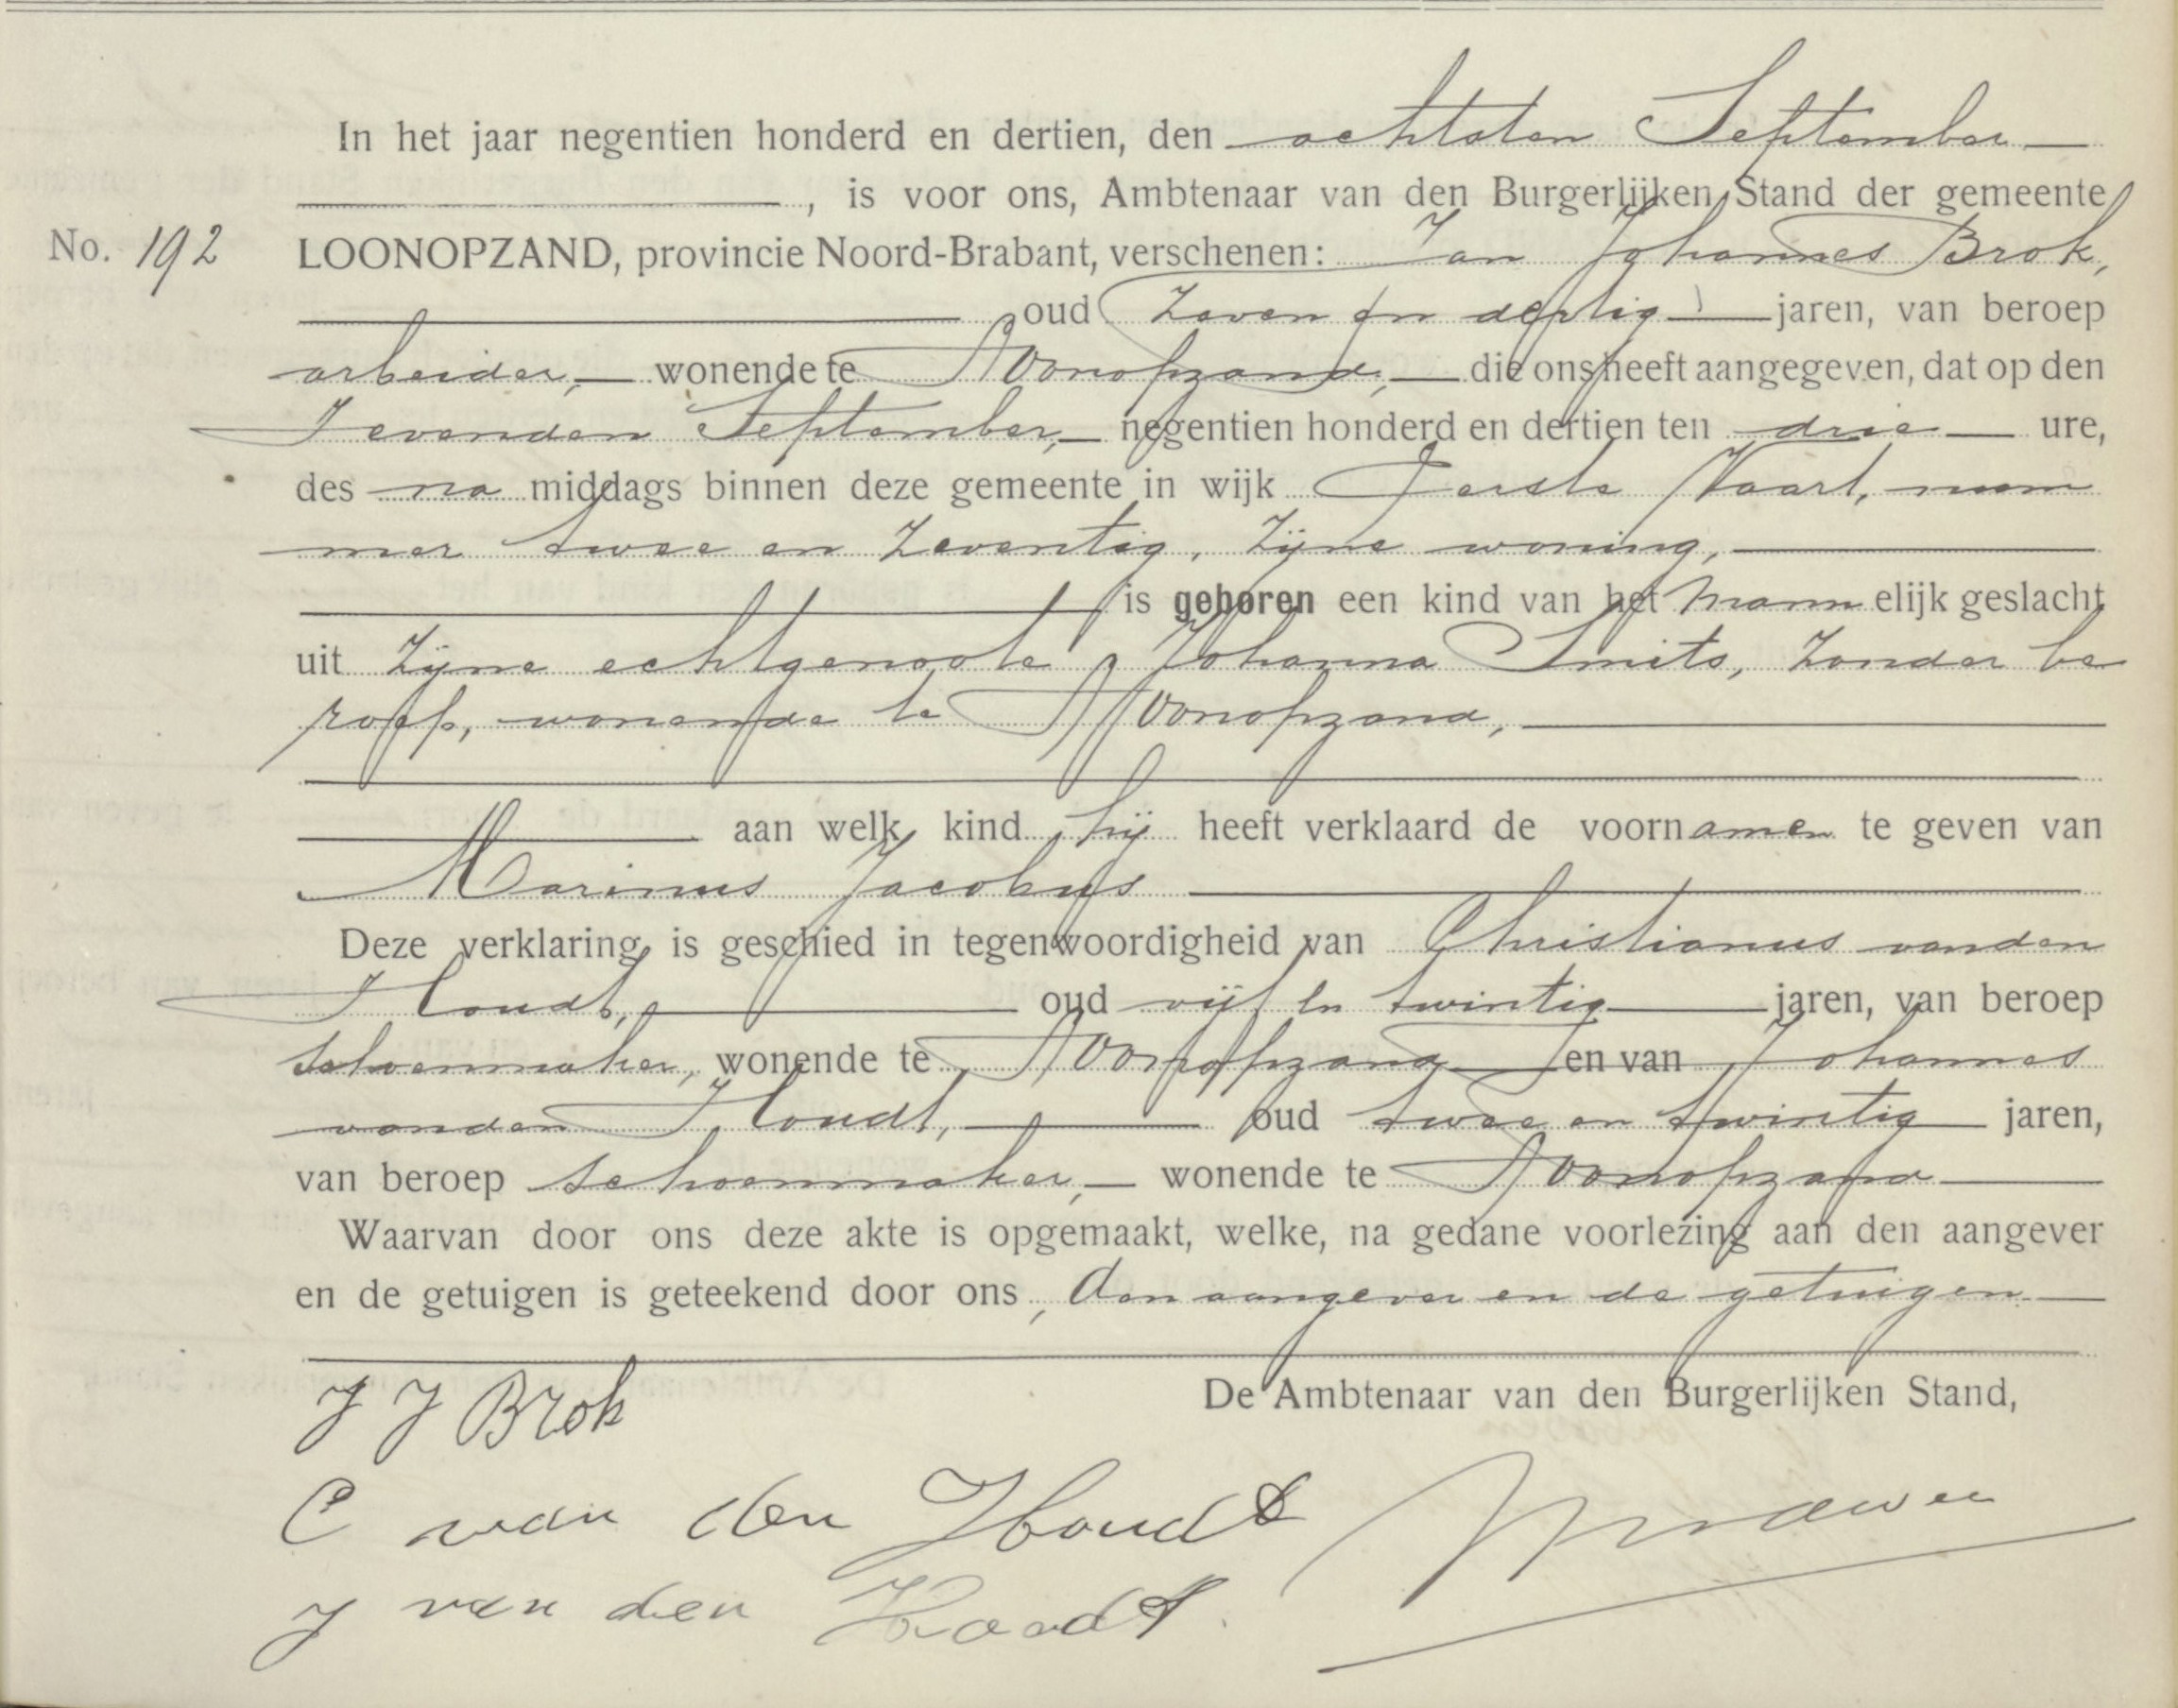 In het jaar negentien honderd en dertien, den achtsten September
, is voor ons, Ambtenaar van den Burgerlijken Stand der gemeente
No. 192 LOONOPZAND, provincie Noord-Brabant, verschenen: Jan Johannes Brok,
oud zeven en dertig jaren, van beroep
arbeider, wonende te Loonopzand, die ons heeft aangegeven, dat op den
zevenden September, negentien honderd en dertien ten drie ure,
des na middags binnen deze gemeente in wijk Eerste Vaart, num
mer twee en zeventig, zijne woning,
is geboren een kind van het mannelijk geslacht
uit zijne echtgenoote Johanna Smits, zonder be
roep, wonende te Loonopzand,
aan welk kind hij heeft verklaard de voornamen te geven van
Marinus Jacobus
Deze verklaring is geschied in tegenwoordigheid van Christianus vanden
Houdt, oud vijf en twintig jaren, van beroep
schoenmaker, wonende te Loonopzand en van Johannes
vanden Houdt, oud twee en twintig jaren,
van beroep schoenmaker, wonende te Loonopzand
Waarvan door ons deze akte is opgemaakt, welke, na gedane voorlezing aan den aangever
en de getuigen is geteekend door ons, den aangever en de getuigen.
De Ambtenaar van den Burgerlijken Stand,
J J Brok
C van den Houdt
J van den Houdt.